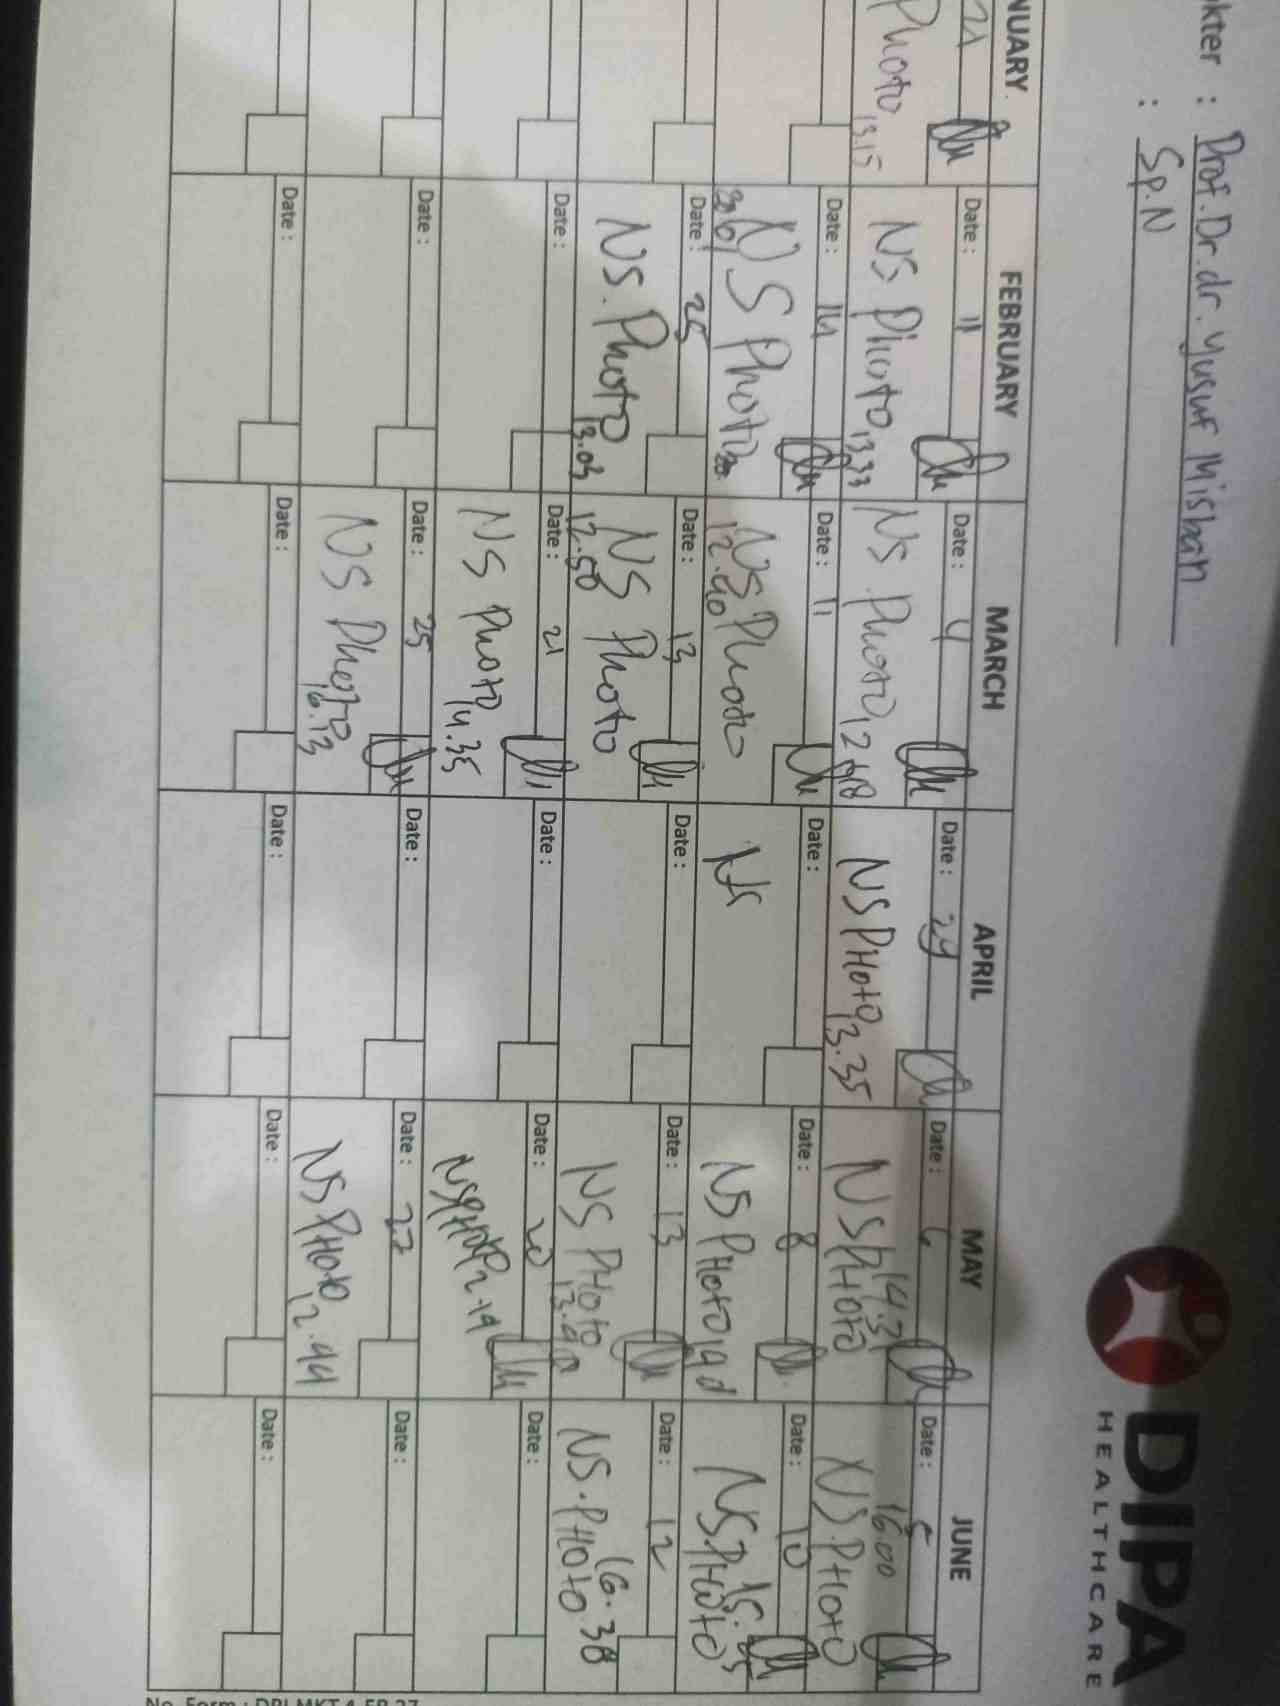 kter : Prof. Dr. dr. Yusuf Misban
: Sp.N
DIPA
HEALTHCARE
NUARY FEBRUARY MARCH APRIL MAY JUNE
21
Photo 13.15
Date : 11
NS Photo 13.33
Date : 4
NS Photo
Date : 29
NS PHOTO 13.35
Date : 6
NS PHOTO
Date : 5
16.00
NS. PHOTO
Date : 14
NS Photo
Date : 11
NS Photo
12.40
Date :
NS
Date : 8
NS PHOTO
Date : 10
NS PHOTO
Date : 25
NS. Photo 13.03
Date : 13
NS Photo
12.50
Date :
Date : 13
NS PHOTO
Date : 12
NS. PHOTO 16.38
Date :
Date : 21
NS Photo 14.35
Date :
Date : 20
NS PHOTO
Date :
Date :
Date : 25
NS Photo 16.13
Date :
Date : 22
NS PHOTO 12.44
Date :
Date :
Date :
Date :
Date :
Date :
No. Form :